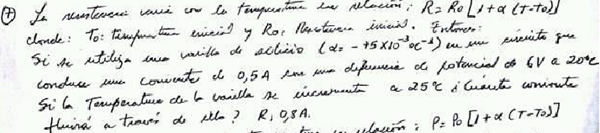 ⑦ La resistencia varia con la temperatura en relación: R = R₀ [1 + α (T-T₀)]
donde: T₀: temperatura inicial y R₀: Resistencia inicial. Entonces:
Si se utiliza una varilla de silicio (α = -75X10⁻³ °C⁻¹) en un circuito que
conduce una corriente de 0,5 A con una diferencia de potencial de 6V a 20°C
Si la Temperatura de la varilla se incrementa a 25°C ¿Cuánta corriente
fluirá a través de ella? R: 0,8A.
la temperatura en relación: P = P₀ [1 + α (T-T₀)]